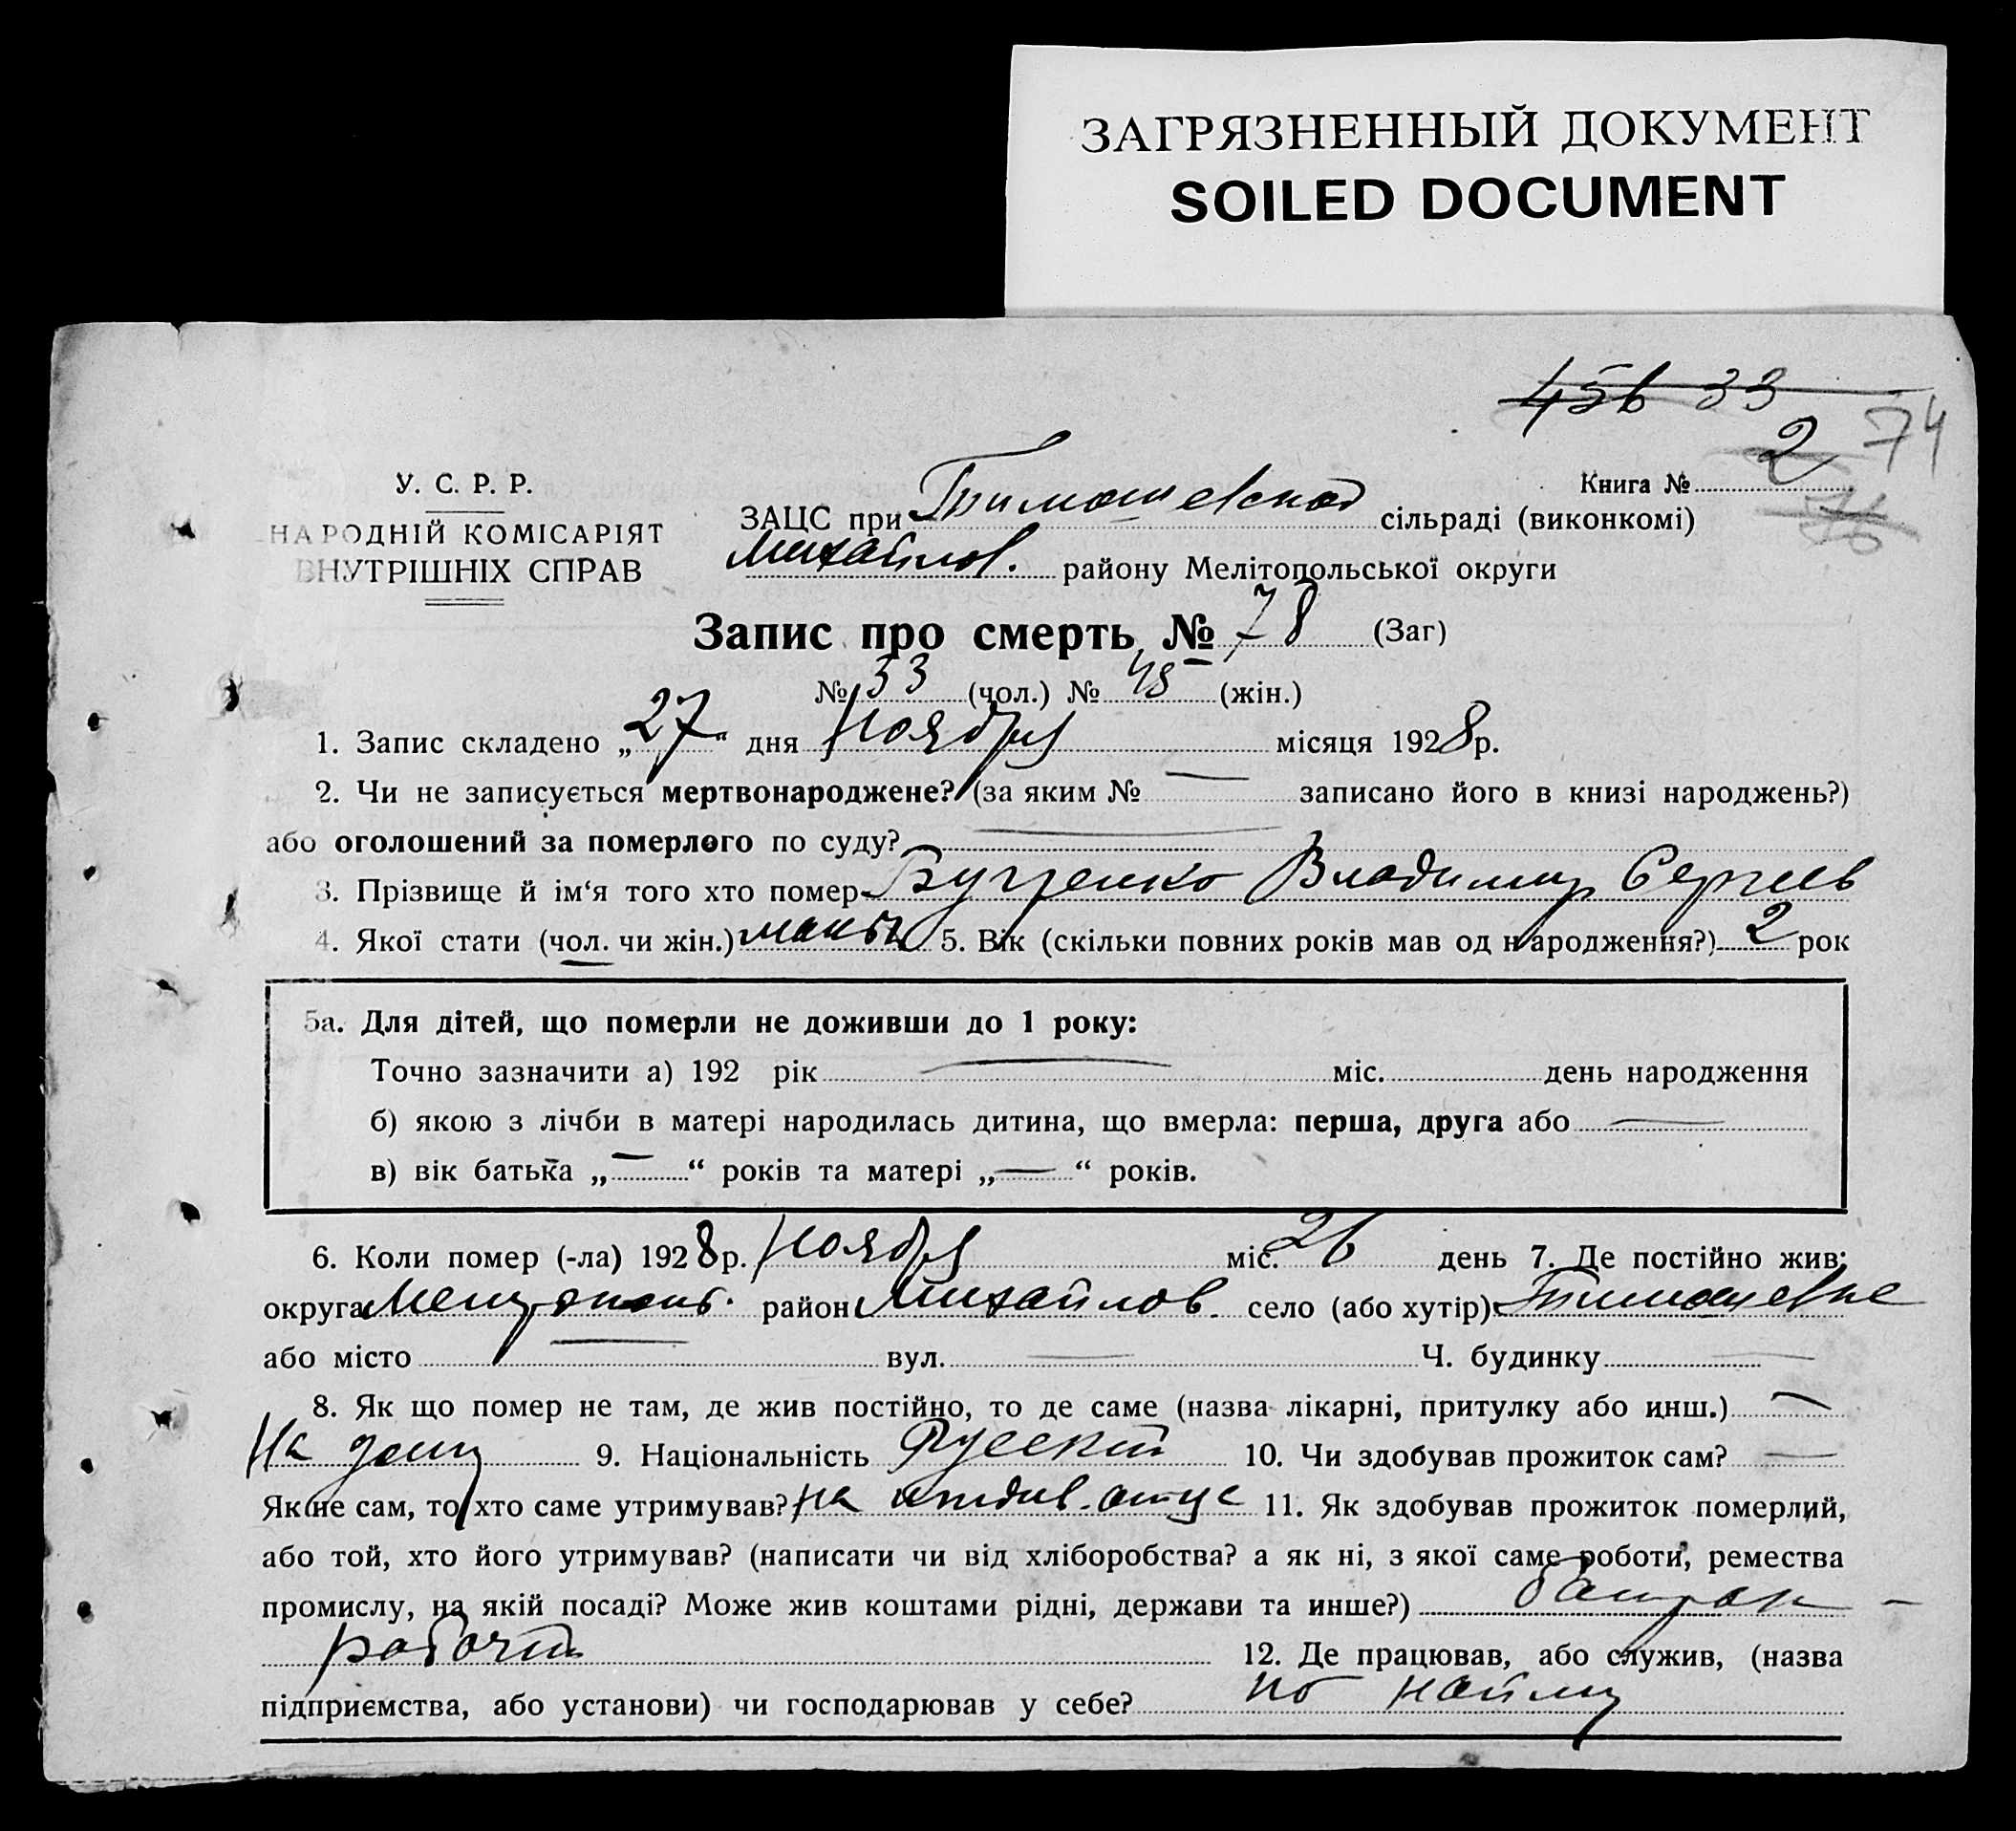 ЗАГРЯЗНЕННЫЙ ДОКУМЕНТ
SOILED DOCUMENT
456 33
2 74
Книга №
76
У. С. Р. Р.
НАРОДНІЙ КОМІСАРІЯТ
ВНУТРІШНІХ СПРАВ
ЗАЦС при Тимошевской сільраді (виконкомі)
Михайлов. району Мелітопольської округи
Запис про смерть № 78 (Заг)
№ 33 (чол.) № 45 (жін.)
1. Запис складено „27“ дня Ноября місяця 1928 р.
2. Чи не записується мертвонароджене? (за яким № — записано його в книзі народжень?)
або оголошений за померлого по суду? —
3. Прізвище й ім‘я того хто помер Бугренко Владимир Сергеев
4. Якої стати (чол. чи жін.) 5. Вік (скільки повних років мав од народження?) 2 рок
5а. Для дітей, що померли не доживши до 1 року:
Точно зазначити а) 192 рік — міс. день народження
б) якою з лічби в матері народилась дитина, що вмерла: перша, друга або —
в) вік батька „—“ років та матері „—“ років.
6. Коли помер (-ла) 1928 р. Ноября міс. 26 день 7. Де постійно жив:
округа район Михайлов. село (або хутір) Тимошевке
або місто — вул. — Ч. будинку —
8. Як що помер не там, де жив постійно, то де саме (назва лікарні, притулку або инш.) —
На дому 9. Національність Русский 10. Чи здобував прожиток сам? —
Як не сам, то хто саме утримував? На иждив. отца 11. Як здобував прожиток померлий,
або той, хто його утримував? (написати чи від хліборобства? а як ні, з якої саме роботи, ремества
промислу, на якій посаді? Може жив коштами рідні, держави та инше?) батрак —
рабочий 12. Де працював, або служив, (назва
підприємства, або установи) чи господарював у себе? по найму